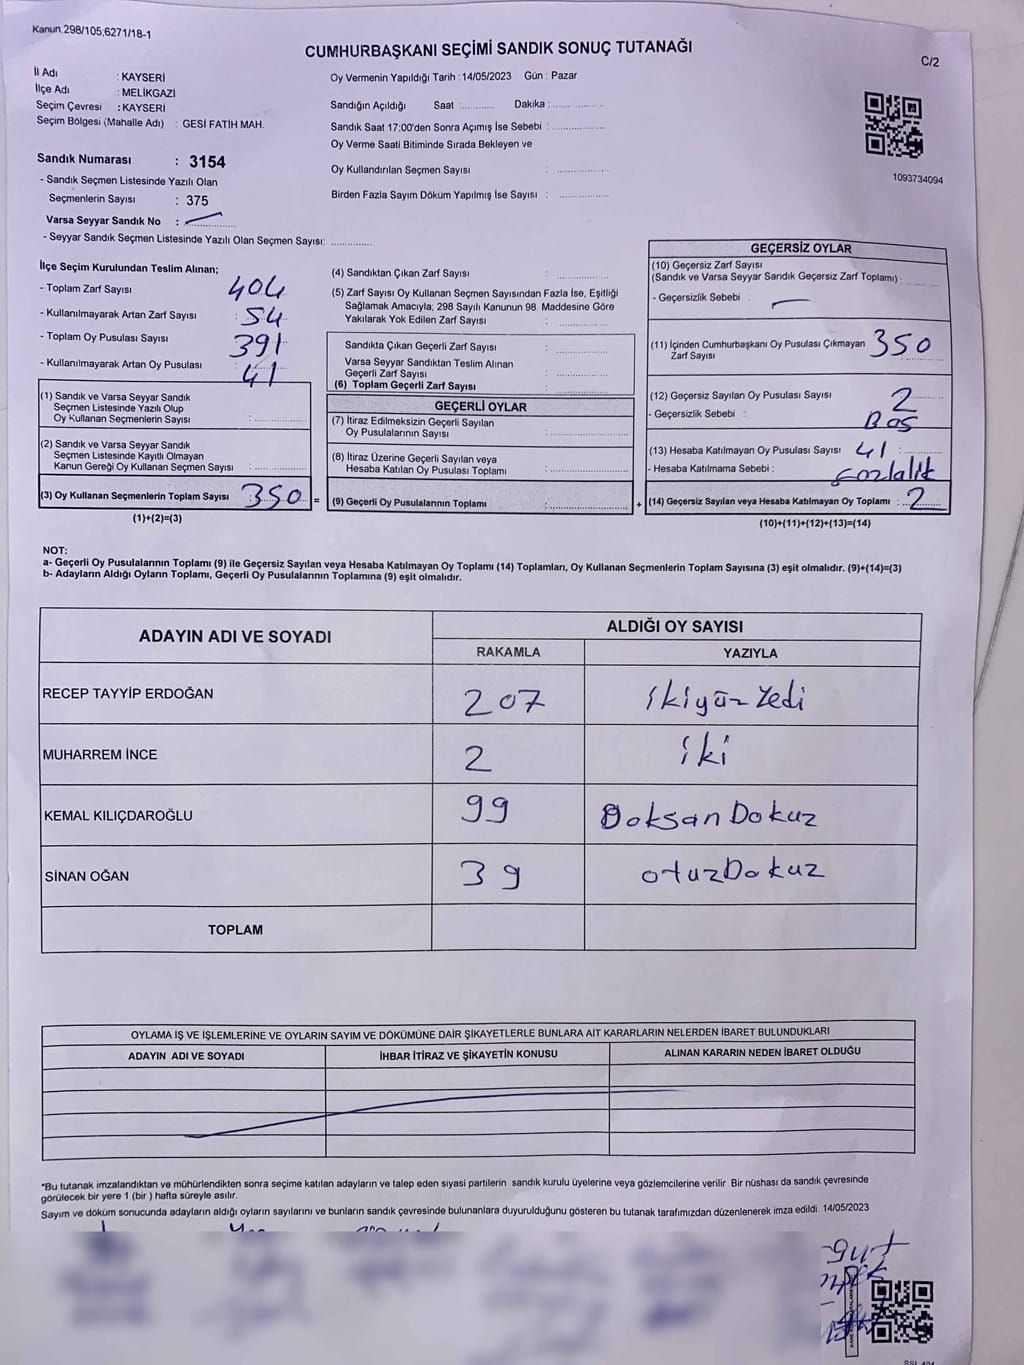 Kanun.298/105,6271/18-1
CUMHURBAŞKANI SEÇİMİ SANDIK SONUÇ TUTANAĞI
C/2
İl Adı : KAYSERİ
İlçe Adı : MELİKGAZİ
Seçim Çevresi : KAYSERİ
Seçim Bölgesi (Mahalle Adı) : GESİ FATİH MAH.
Sandık Numarası : 3154
- Sandık Seçmen Listesinde Yazılı Olan
Seçmenlerin Sayısı : 375
Varsa Seyyar Sandık No :
- Seyyar Sandık Seçmen Listesinde Yazılı Olan Seçmen Sayısı:
Oy Vermenin Yapıldığı Tarih : 14/05/2023 Gün : Pazar
Sandığın Açıldığı Saat : Dakika :
Sandık Saat 17:00'den Sonra Açımış İse Sebebi :
Oy Verme Saati Bitiminde Sırada Bekleyen ve
Oy Kullandırılan Seçmen Sayısı :
Birden Fazla Sayım Döküm Yapılmış İse Sayısı :
1093734094
İlçe Seçim Kurulundan Teslim Alınan;
- Toplam Zarf Sayısı : 404
- Kullanılmayarak Artan Zarf Sayısı : 54
- Toplam Oy Pusulası Sayısı : 391
- Kullanılmayarak Artan Oy Pusulası : 41
(1) Sandık ve Varsa Seyyar Sandık
Seçmen Listesinde Yazılı Olup
Oy Kullanan Seçmenlerin Sayısı :
(2) Sandık ve Varsa Seyyar Sandık
Seçmen Listesinde Kayıtlı Olmayan
Kanun Gereği Oy Kullanan Seçmen Sayısı :
(3) Oy Kullanan Seçmenlerin Toplam Sayısı 350 =
(1)+(2)=(3)
(4) Sandıktan Çıkan Zarf Sayısı :
(5) Zarf Sayısı Oy Kullanan Seçmen Sayısından Fazla İse, Eşitliği
Sağlamak Amacıyla; 298 Sayılı Kanunun 98. Maddesine Göre
Yakılarak Yok Edilen Zarf Sayısı :
Sandıkta Çıkan Geçerli Zarf Sayısı :
Varsa Seyyar Sandıktan Teslim Alınan
Geçerli Zarf Sayısı :
(6) Toplam Geçerli Zarf Sayısı :
GEÇERLİ OYLAR
(7) İtiraz Edilmeksizin Geçerli Sayılan
Oy Pusulalarının Sayısı :
(8) İtiraz Üzerine Geçerli Sayılan veya
Hesaba Katılan Oy Pusulası Toplamı :
(9) Geçerli Oy Pusulalarının Toplamı : +
GEÇERSİZ OYLAR
(10) Geçersiz Zarf Sayısı
(Sandık ve Varsa Seyyar Sandık Geçersiz Zarf Toplamı) :
- Geçersizlik Sebebi :
(11) İçinden Cumhurbaşkanı Oy Pusulası Çıkmayan 350
Zarf Sayısı
(12) Geçersiz Sayılan Oy Pusulası Sayısı 2
- Geçersizlik Sebebi : Boş
(13) Hesaba Katılmayan Oy Pusulası Sayısı : 41
- Hesaba Katılmama Sebebi : Fazlalık
(14) Geçersiz Sayılan veya Hesaba Katılmayan Oy Toplamı : 2
(10)+(11)+(12)+(13)=(14)
NOT:
a- Geçerli Oy Pusulalarının Toplamı (9) ile Geçersiz Sayılan veya Hesaba Katılmayan Oy Toplamı (14) Toplamları, Oy Kullanan Seçmenlerin Toplam Sayısına (3) eşit olmalıdır. (9)+(14)=(3)
b- Adayların Aldığı Oyların Toplamı, Geçerli Oy Pusulalarının Toplamına (9) eşit olmalıdır.
ADAYIN ADI VE SOYADI
ALDIĞI OY SAYISI
RAKAMLA YAZIYLA
RECEP TAYYİP ERDOĞAN 207 ikiyüz Yedi
MUHARREM İNCE 2 iki
KEMAL KILIÇDAROĞLU 99 Doksan Dokuz
SİNAN OĞAN 39 otuz Dokuz
TOPLAM
OYLAMA İŞ VE İŞLEMLERİNE VE OYLARIN SAYIM VE DÖKÜMÜNE DAİR ŞİKAYETLERLE BUNLARA AİT KARARLARIN NELERDEN İBARET BULUNDUKLARI
ADAYIN ADI VE SOYADI İHBAR İTİRAZ VE ŞİKAYETİN KONUSU ALINAN KARARIN NEDEN İBARET OLDUĞU
*Bu tutanak imzalandıktan ve mühürlendikten sonra seçime katılan adayların ve talep eden siyasi partilerin sandık kurulu üyelerine veya gözlemcilerine verilir. Bir nüshası da sandık çevresinde
görülecek bir yere 1 (bir ) hafta süreyle asılır.
Sayım ve döküm sonucunda adayların aldığı oyların sayılarını ve bunların sandık çevresinde bulunanlara duyurulduğunu gösteren bu tutanak tarafımızdan düzenlenerek imza edildi. 14/05/2023